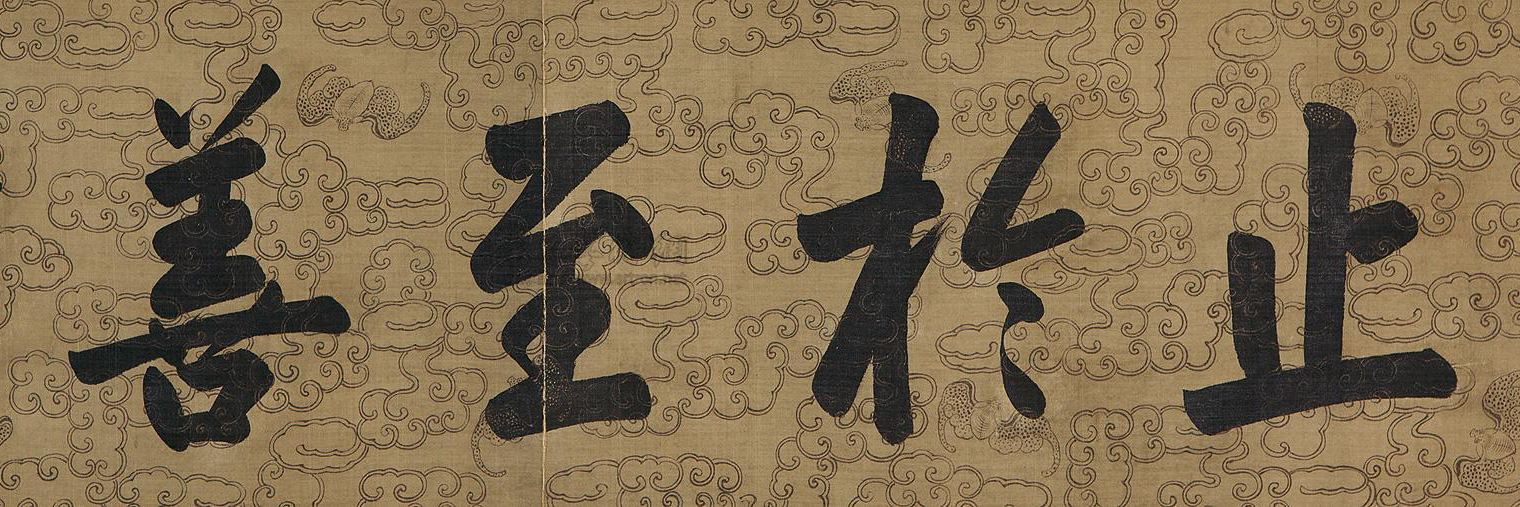 止於至善